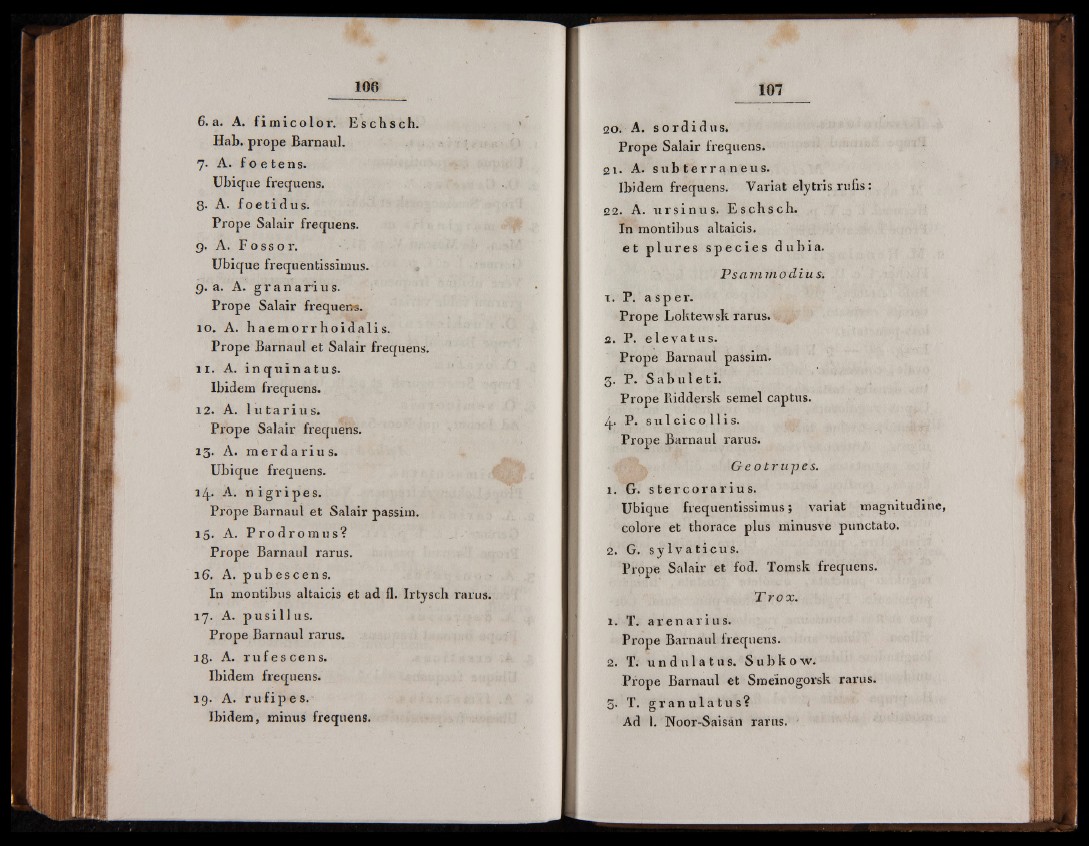 106
6. a. A. fimicolor. Eschsch.
Hab. prope Barnaul.
7. A. foetens.
Ubique frequens.
8. A. foetidus.
Prope Salair frequens.
9. A. Fossor.
Ubique frequentissimus.
9. a. A. granarius.
Prope Salair frequens.
10. A. haemorrhoidalis.
Prope Barnaul et Salair frequens.
11. A. inquinatus.
Ibidem frequens.
12. A. lutarius.
Prope Salair frequens.
13. A. merdarius.
Ubique frequens.
14. A. nigripes.
Prope Barnaul et Salair passim.
15. A. Prodromus?
Prope Barnaul rarus.
16. A. pubescens.
In montibus altaicis et ad fl. Irtysch rarus.
17. A. pusillus.
Prope Barnaul rarus.
18. A. rufescens.
Ibidem frequens.
19. A. rufipes.
Ibidem, minus frequens.
107
20. A. sordidus.
Prope Salair frequens.
21. A. subterraneus.
Ibidem frequens. Variat elytris rufis:
22. A. ursinus. Eschsch.
In montibus altaicis.
et plures species dubia.
Psammodius.
1. P. asper.
Prope Loktewsk rarus.
2. P. elevatus.
Prope Barnaul passim.
3. P. Sabuleti.
Prope Riddersk semel captus.
4. P. sulcicollis.
Prope Barnaul rarus.
Geotrupes.
1. G. stercorarius.
Ubique frequentissimus; variat magnitudine,
colore et thorace plus minusve punctato.
2. G. sylvaticus.
Prope Salair et fod. Tomsk frequens.
Trox.
1. T. arenarius.
Prope Barnaul frequens.
2. T. undulatus. Subkow.
Prope Barnaul et Smeïnogorsk rarus.
3. T. granulatus?
Ad l. Noor-Saisan rarus.